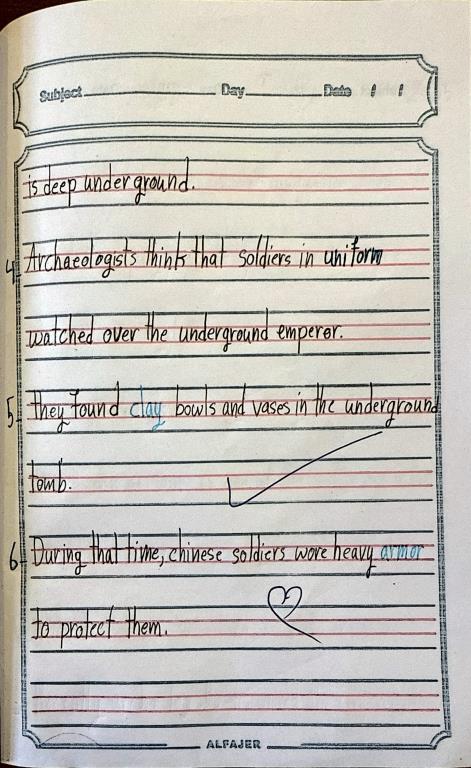 Subject Day Date / /
is deep underground.
4. Archaeologists think that soldiers in uniform
watched over the underground emperor.
5. they found clay bowls and vases in the underground
tomb.
6. During that time, chinese soldiers wore heavy armor
to protect them.
ALFAJER